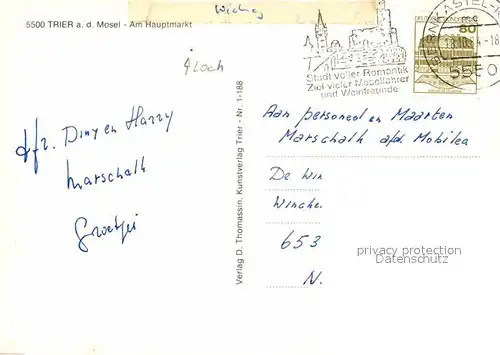 5500 TRIER a. d. Mosel - Am Hauptmarkt
4 Loch
Stadt voller Romantik
Ziel vieler Moselfahrer
und Weinfreunde
DEUTSCHE BUNDESPOST
80
BERNKASTEL
5550
Afz. Diny en Harry
Marschalk
Groetjes
Verlag D. Thomassin, Kunstverlag Trier - Nr. 1-188
Aan personeel en Maarten
Marschalk a/d Mobilea
De Win
Winche
653
N.
privacy protection
Datenschutz